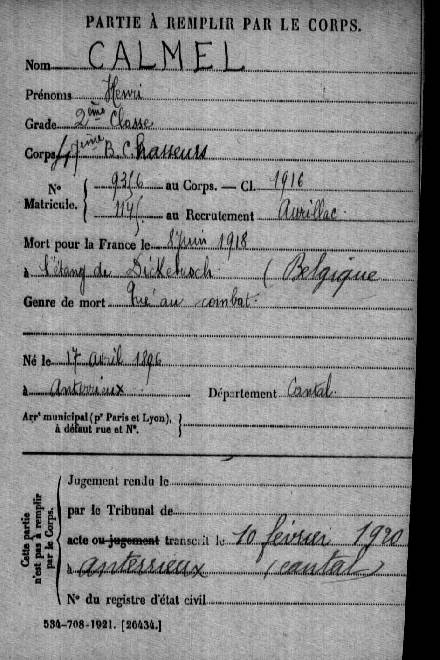 PARTIE À REMPLIR PAR LE CORPS.
Nom CALMEL
Prénoms Henri
Grade 2ème Classe
Corps 47ème B. Chasseurs
N° Matricule. { 9316 au Corps. — Cl. 1916
au Recrutement Aurillac
Mort pour la France le 8 juin 1918
à l'étang de Dickebusch (Belgique
Genre de mort Tué au combat
Né le 17 avril 1896
à Anterrieux Département Cantal
Arrt municipal (pr Paris et Lyon), à défaut rue et N°. }
Cette partie n'est pas à remplir par le Corps.
Jugement rendu le
par le Tribunal de
acte ou jugement transcrit le 10 février 1920
à Anterrieux (Cantal)
N° du registre d'état civil
534-708-1921. [26434.]